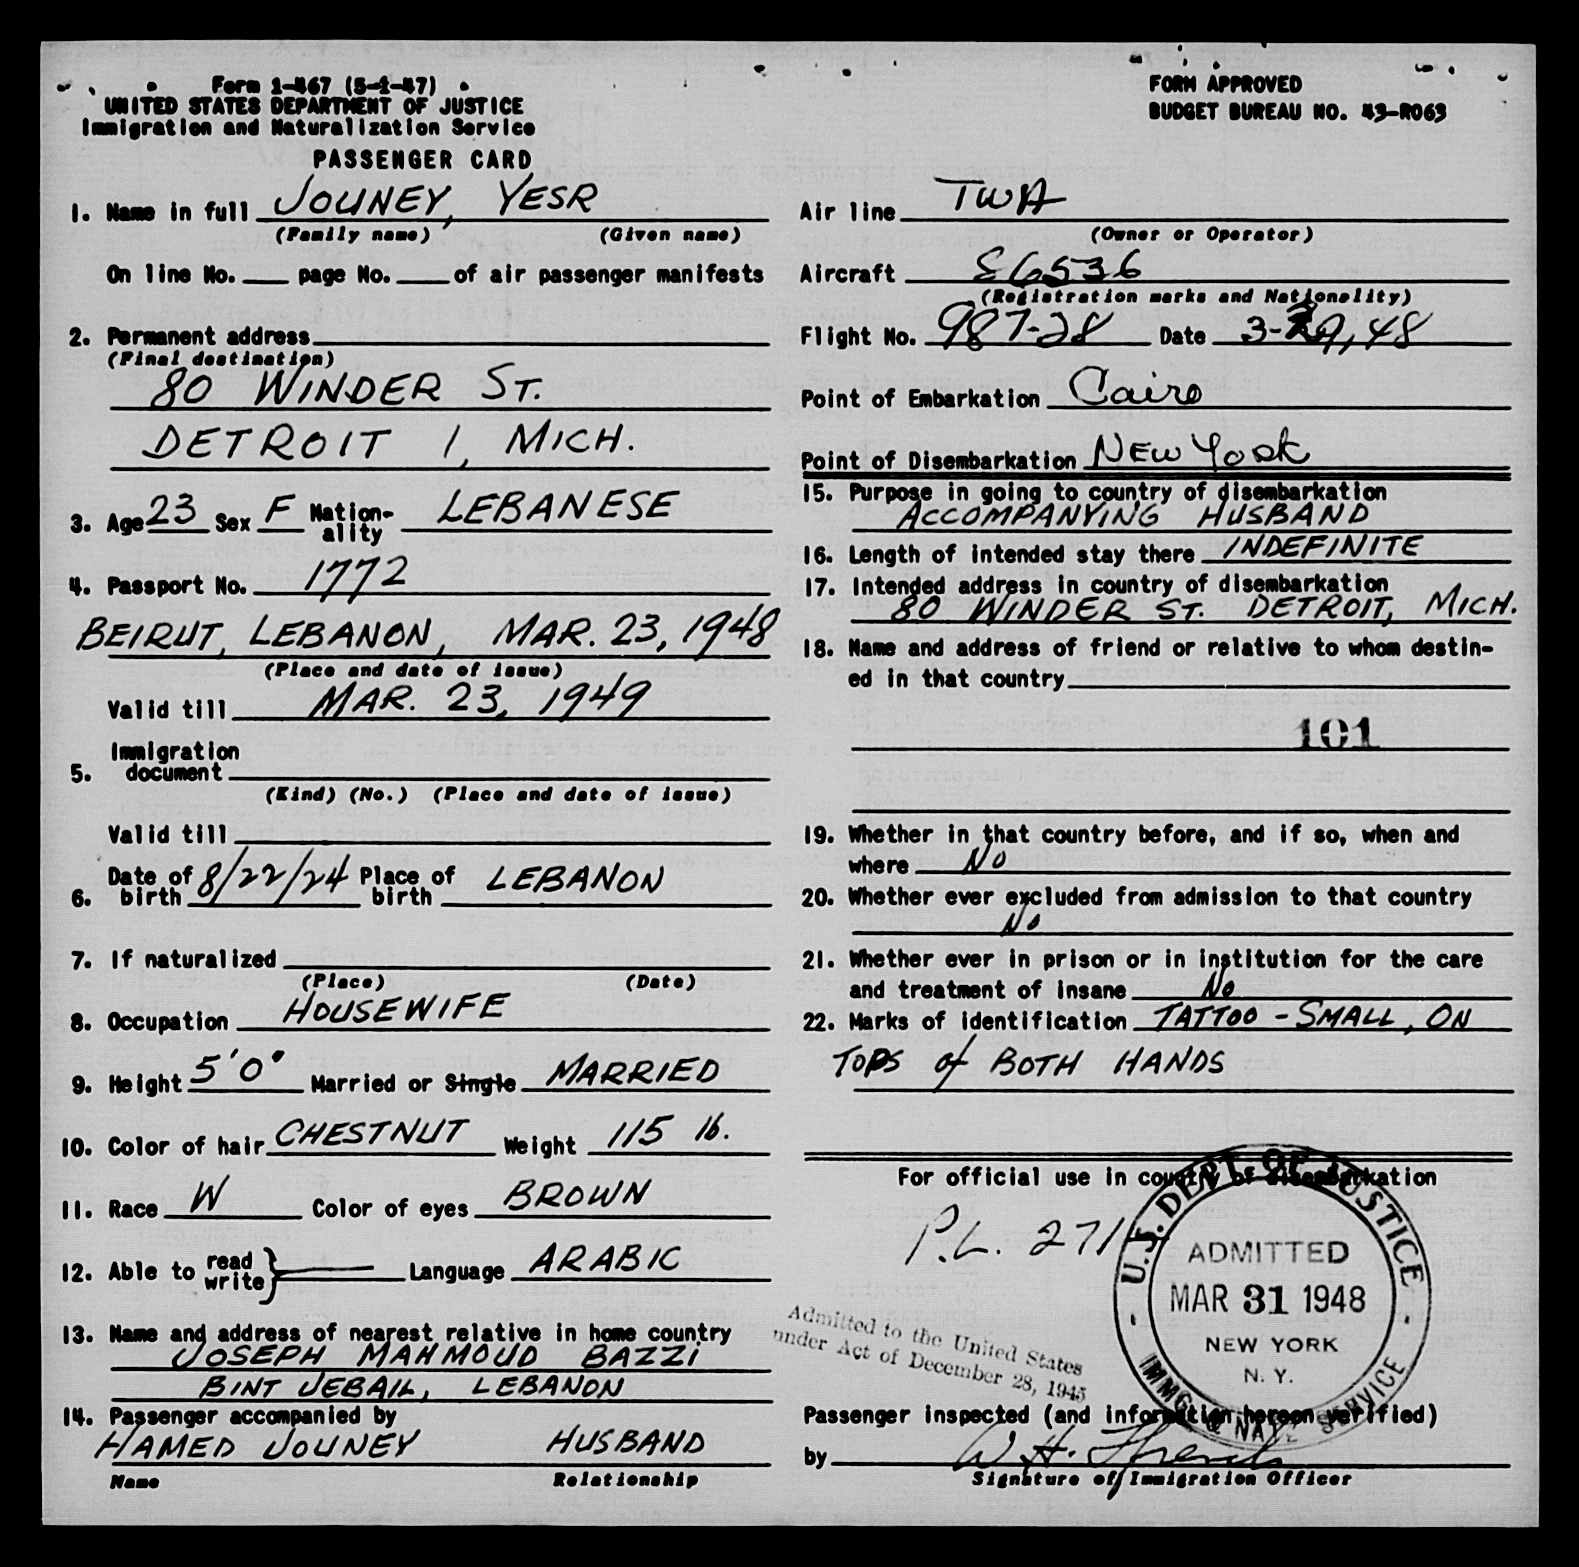 Form 1-467 (5-1-47)
UNITED STATES DEPARTMENT OF JUSTICE
Immigration and Naturalization Service
PASSENGER CARD
FORM APPROVED
BUDGET BUREAU NO. 43-R063
1. Name in full JOUNEY, YESR
(Family name) (Given name)
On line No. page No. of air passenger manifests
2. Permanent address
(Final destination)
80 WINDER ST.
DETROIT 1, MICH.
3. Age 23 Sex F Nation-ality LEBANESE
4. Passport No. 1772
BEIRUT, LEBANON, MAR. 23, 1948
(Place and date of issue)
Valid till MAR. 23, 1949
5. Immigration document
(Kind) (No.) (Place and date of issue)
Valid till
6. Date of birth 8/22/24 Place of birth LEBANON
7. If naturalized
(Place) (Date)
8. Occupation HOUSEWIFE
9. Height 5'0" Married or Single MARRIED
10. Color of hair CHESTNUT Weight 115 lb.
11. Race W Color of eyes BROWN
12. Able to read write } Language ARABIC
13. Name and address of nearest relative in home country
JOSEPH MAHMOUD BAZZI
BINT JEBAIL, LEBANON
14. Passenger accompanied by
HAMED JOUNEY HUSBAND
Name Relationship
Air line TWA
(Owner or Operator)
Aircraft 86536
(Registration marks and Nationality)
Flight No. 987-28 Date 3-29, 48
Point of Embarkation Cairo
Point of Disembarkation NEW YORK
15. Purpose in going to country of disembarkation
ACCOMPANYING HUSBAND
16. Length of intended stay there INDEFINITE
17. Intended address in country of disembarkation
80 WINDER ST. DETROIT, MICH.
18. Name and address of friend or relative to whom destin-
ed in that country
101
19. Whether in that country before, and if so, when and
where No
20. Whether ever excluded from admission to that country
No
21. Whether ever in prison or in institution for the care
and treatment of insane No
22. Marks of identification TATTOO - SMALL, ON
TOPS of BOTH HANDS
For official use in country of disembarkation
P.L. 271
U.S. DEPT. OF JUSTICE
ADMITTED
MAR 31 1948
NEW YORK
N. Y.
IMMG. & NATZ. SERVICE
Admitted to the United States
under Act of December 28, 1945
Passenger inspected (and information hereon verified)
by W. H. French
Signature of Immigration Officer